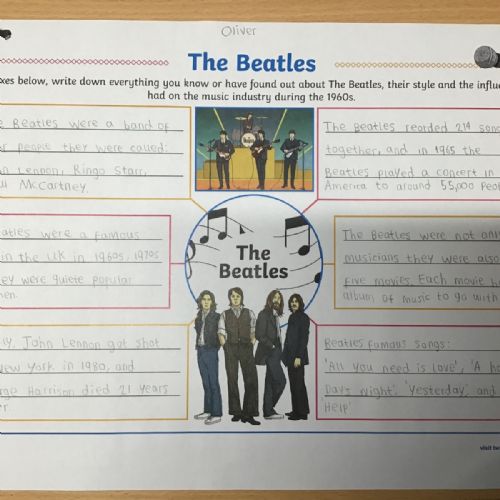 Oliver
The Beatles
boxes below, write down everything you know or have found out about The Beatles, their style and the influ
had on the music industry during the 1960s.
Beatles were a band of
people they were called:
Lennon, Ringo Starr,
McCartney.
The Beatles recorded 214 son
together, and in 1965 the
Beatles played a concert in
America to around 55,000 peo
were a famous
in the UK in 1960s, 1970s
they were quiete popular
then.
The Beatles
The Beatles were not on
musicians they were also
five movies. Each movie h
album of music to go with
John Lennon got shot
New York in 1980, and
Harrison died 21 years
Beatles famous songs:
'All you need is love', 'A h
Days night', 'Yesterday', and
Help'
visit